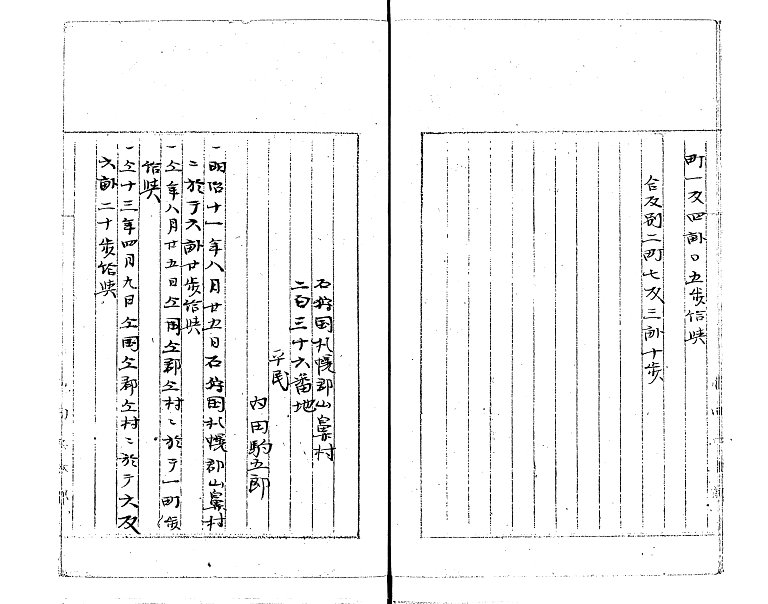 町一反四畝〇五歩給与
合反別二町七反三畝十歩
石狩国札幌郡山鼻村
二百三十六番地
平民
内田駒五郎
一明治十一年八月廿五日石狩国札幌郡山鼻村
ニ於テ六畝廿歩給与
一仝年八月廿五日仝国仝郡仝村ニ於テ一町歩
給与
一仝十三年四月九日仝国仝郡仝村ニ於テ六反
六畝二十歩給与